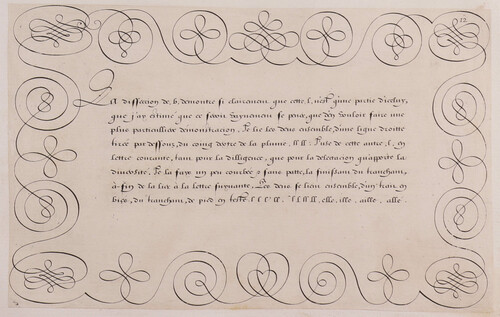 12
La dissection de, b, demontre si clairement que cette, l, n'est q'une partie d'iceluy,
que j'ay estimé que ce seroit superieur se peine, que d'en vouloir faire une
plus particuliere demonstration. Je lie les deux ensemble, d'une ligne droitte
tirée par dessous, du coing dextre de la plume, ll ll : J'use de cette autre, l, en
lettre courante, tant pour la dilligence, que pour la delectation qu'apporte la
diversité. Je la faits un peu courbée sans patte, la finissant du tranchant,
à-fin de la lier à la lettre suyvante. Les deux se lient ensemble, d'un trait en
biez, du tranchant, de pied en teste. l l l ll. ll ll, elle, ille, aille, alle.